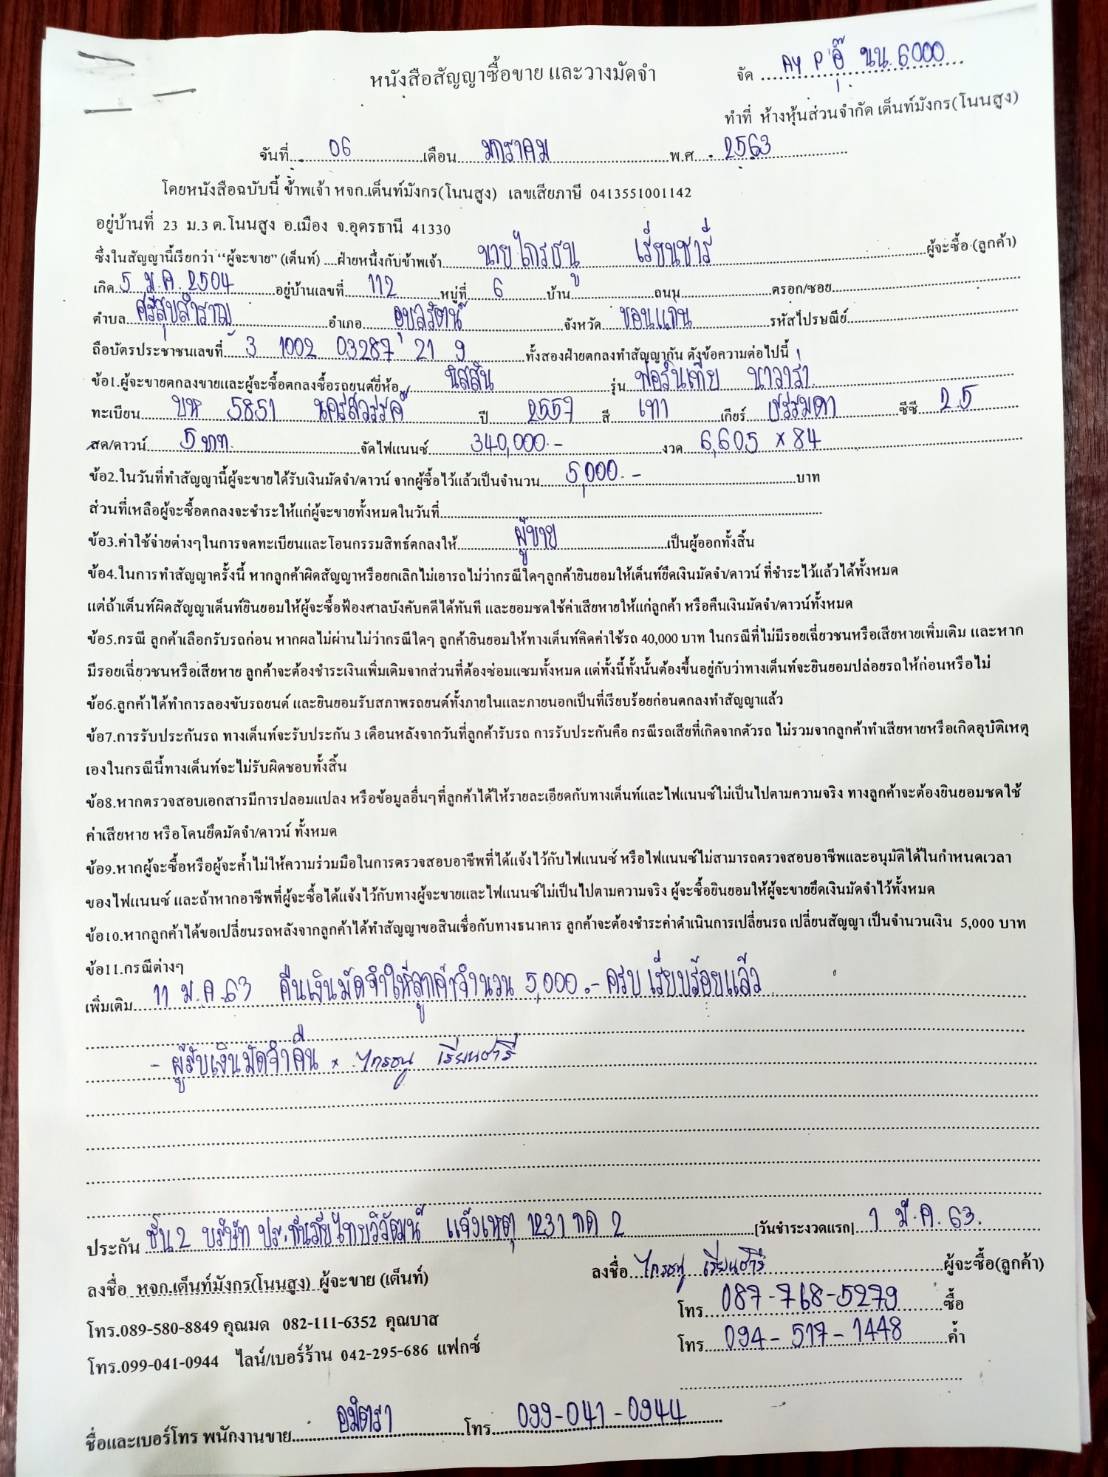 หนังสือสัญญาซื้อขาย และวางมัดจำ
จัด Ay P อุ๊ นน. 6000
ทำที่ ห้างหุ้นส่วนจำกัด เต็นท์มังกร(โนนสูง)
วันที่ 06 เดือน มกราคม พ.ศ. 2563
โดยหนังสือฉบับนี้ ข้าพเจ้า หจก.เต็นท์มังกร(โนนสูง) เลขเสียภาษี 0413551001142
อยู่บ้านที่ 23 ม.3 ต.โนนสูง อ.เมือง จ.อุดรธานี 41330
ซึ่งในสัญญานี้เรียกว่า "ผู้จะขาย" (เต็นท์) ....ฝ่ายหนึ่งกับข้าพเจ้า นายไกรธนู เรียนชารี ผู้จะซื้อ (ลูกค้า)
เกิด 5 ม.ค. 2504 อยู่บ้านเลขที่ 112 หมู่ที่ 6 บ้าน ถนน ตรอก/ซอย
ตำบล ศรีสุขสำราญ อำเภอ อุบลรัตน์ จังหวัด ขอนแก่น รหัสไปรษณีย์
ถือบัตรประชาชนเลขที่ 3 1002 03287 21 9 ทั้งสองฝ่ายตกลงทำสัญญากัน ดังข้อความต่อไปนี้
ข้อ1.ผู้จะขายตกลงขายและผู้จะซื้อตกลงซื้อรถยนต์ยี่ห้อ นิสสัน รุ่น ฟอร์นเทีย นาวาร่า
ทะเบียน บห 5851 นครสวรรค์ ปี 2557 สี เทา เกียร์ ธรรมดา ซีซี 2.5
สด/ดาวน์ 5 บาท จัดไฟแนนซ์ 340,000.- งวด 6,605 x 84
ข้อ2.ในวันที่ทำสัญญานี้ผู้จะขายได้รับเงินมัดจำ/ดาวน์ จากผู้ซื้อไว้แล้วเป็นจำนวน 5,000.- บาท
ส่วนที่เหลือผู้จะซื้อตกลงจะชำระให้แก่ผู้จะขายทั้งหมดในวันที่
ข้อ3.ค่าใช้จ่ายต่างๆในการจดทะเบียนและโอนกรรมสิทธ์ตกลงให้ ผู้ขาย เป็นผู้ออกทั้งสิ้น
ข้อ4.ในการทำสัญญาครั้งนี้ หากลูกค้าผิดสัญญาหรือยกเลิกไม่เอารถไม่ว่ากรณีใดๆลูกค้ายินยอมให้เต็นท์ยึดเงินมัดจำ/ดาวน์ ที่ชำระไว้แล้วได้ทั้งหมด
แต่ถ้าเต็นท์ผิดสัญญาเต็นท์ยินยอมให้ผู้จะซื้อฟ้องศาลบังคับคดีได้ทันที และยอมชดใช้ค่าเสียหายให้แก่ลูกค้า หรือคืนเงินมัดจำ/ดาวน์ทั้งหมด
ข้อ5.กรณี ลูกค้าเลือกรับรถก่อน หากผลไม่ผ่านไม่ว่ากรณีใดๆ ลูกค้ายินยอมให้ทางเต็นท์คิดค่าใช้รถ 40,000 บาท ในกรณีที่ไม่มีรอยเฉี่ยวชนหรือเสียหายเพิ่มเติม และหาก
มีรอยเฉี่ยวชนหรือเสียหาย ลูกค้าจะต้องชำระเงินเพิ่มเติมจากส่วนที่ต้องซ่อมแซมทั้งหมด แต่ทั้งนี้ทั้งนั้นต้องขึ้นอยู่กับว่าทางเต็นท์จะยินยอมปล่อยรถให้ก่อนหรือไม่
ข้อ6.ลูกค้าได้ทำการลองขับรถยนต์ และยินยอมรับสภาพรถยนต์ทั้งภายในและภายนอกเป็นที่เรียบร้อยก่อนตกลงทำสัญญาแล้ว
ข้อ7.การรับประกันรถ ทางเต็นท์จะรับประกัน 3 เดือนหลังจากวันที่ลูกค้ารับรถ การรับประกันคือ กรณีรถเสียที่เกิดจากตัวรถ ไม่รวมจากลูกค้าทำเสียหายหรือเกิดอุบัติเหตุ
เองในกรณีนี้ทางเต็นท์จะไม่รับผิดชอบทั้งสิ้น
ข้อ8.หากตรวจสอบเอกสารมีการปลอมแปลง หรือข้อมูลอื่นๆที่ลูกค้าได้ให้รายละเอียดกับทางเต็นท์และไฟแนนซ์ไม่เป็นไปตามความจริง ทางลูกค้าจะต้องยินยอมชดใช้
ค่าเสียหาย หรือโดนยึดมัดจำ/ดาวน์ ทั้งหมด
ข้อ9.หากผู้จะซื้อหรือผู้จะค้ำไม่ให้ความร่วมมือในการตรวจสอบอาชีพที่ได้แจ้งไว้กับไฟแนนซ์ หรือไฟแนนซ์ไม่สามารถตรวจสอบอาชีพและอนุมัติได้ในกำหนดเวลา
ของไฟแนนซ์ และถ้าหากอาชีพที่ผู้จะซื้อได้แจ้งไว้กับทางผู้จะขายและไฟแนนซ์ไม่เป็นไปตามความจริง ผู้จะซื้อยินยอมให้ผู้จะขายยึดเงินมัดจำไว้ทั้งหมด
ข้อ10.หากลูกค้าได้ขอเปลี่ยนรถหลังจากลูกค้าได้ทำสัญญาขอสินเชื่อกับทางธนาคาร ลูกค้าจะต้องชำระค่าดำเนินการเปลี่ยนรถ เปลี่ยนสัญญา เป็นจำนวนเงิน 5,000 บาท
ข้อ11.กรณีต่างๆ
เพิ่มเติม 11 ม.ค.63 คืนเงินมัดจำให้ลูกค้าจำนวน 5,000.- ครบ เรียบร้อยแล้ว
- ผู้รับเงินมัดจำคืน x ไกรธนู เรียนชารี
ประกัน ชั้น 2 บริษัท ประกันภัยไทยวิวัฒน์ แจ้งเหตุ 1231 กด 2 [วันชำระงวดแรก] 1 มี.ค. 63.
ลงชื่อ หจก.เต็นท์มังกร(โนนสูง) ผู้จะขาย (เต็นท์)
ลงชื่อ ไกรธนู เรียนชารี ผู้จะซื้อ(ลูกค้า)
โทร. 087-768-5279 ซื้อ
โทร.089-580-8849 คุณมด 082-111-6352 คุณบาส
โทร. 094-517-1448 ค้ำ
โทร.099-041-0944 ไลน์/เบอร์ร้าน 042-295-686 แฟกซ์
ชื่อและเบอร์โทร พนักงานขาย อมิตรา โทร. 099-041-0944